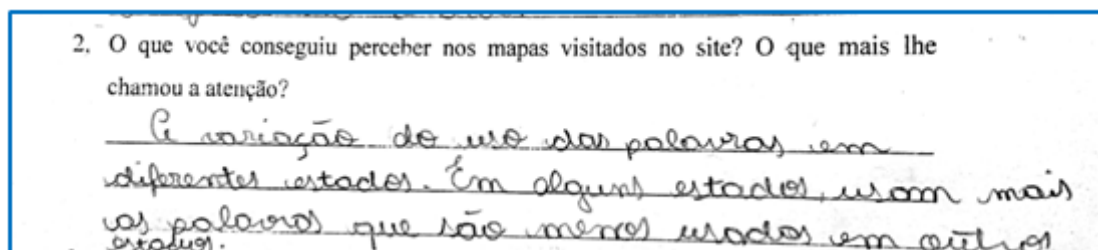 2. O que você conseguiu perceber nos mapas visitados no site? O que mais lhe
chamou a atenção?
A variação do uso das palavras em
diferentes estados. Em alguns estados, usam mais
as palavras que são menos usados em outros
estados.